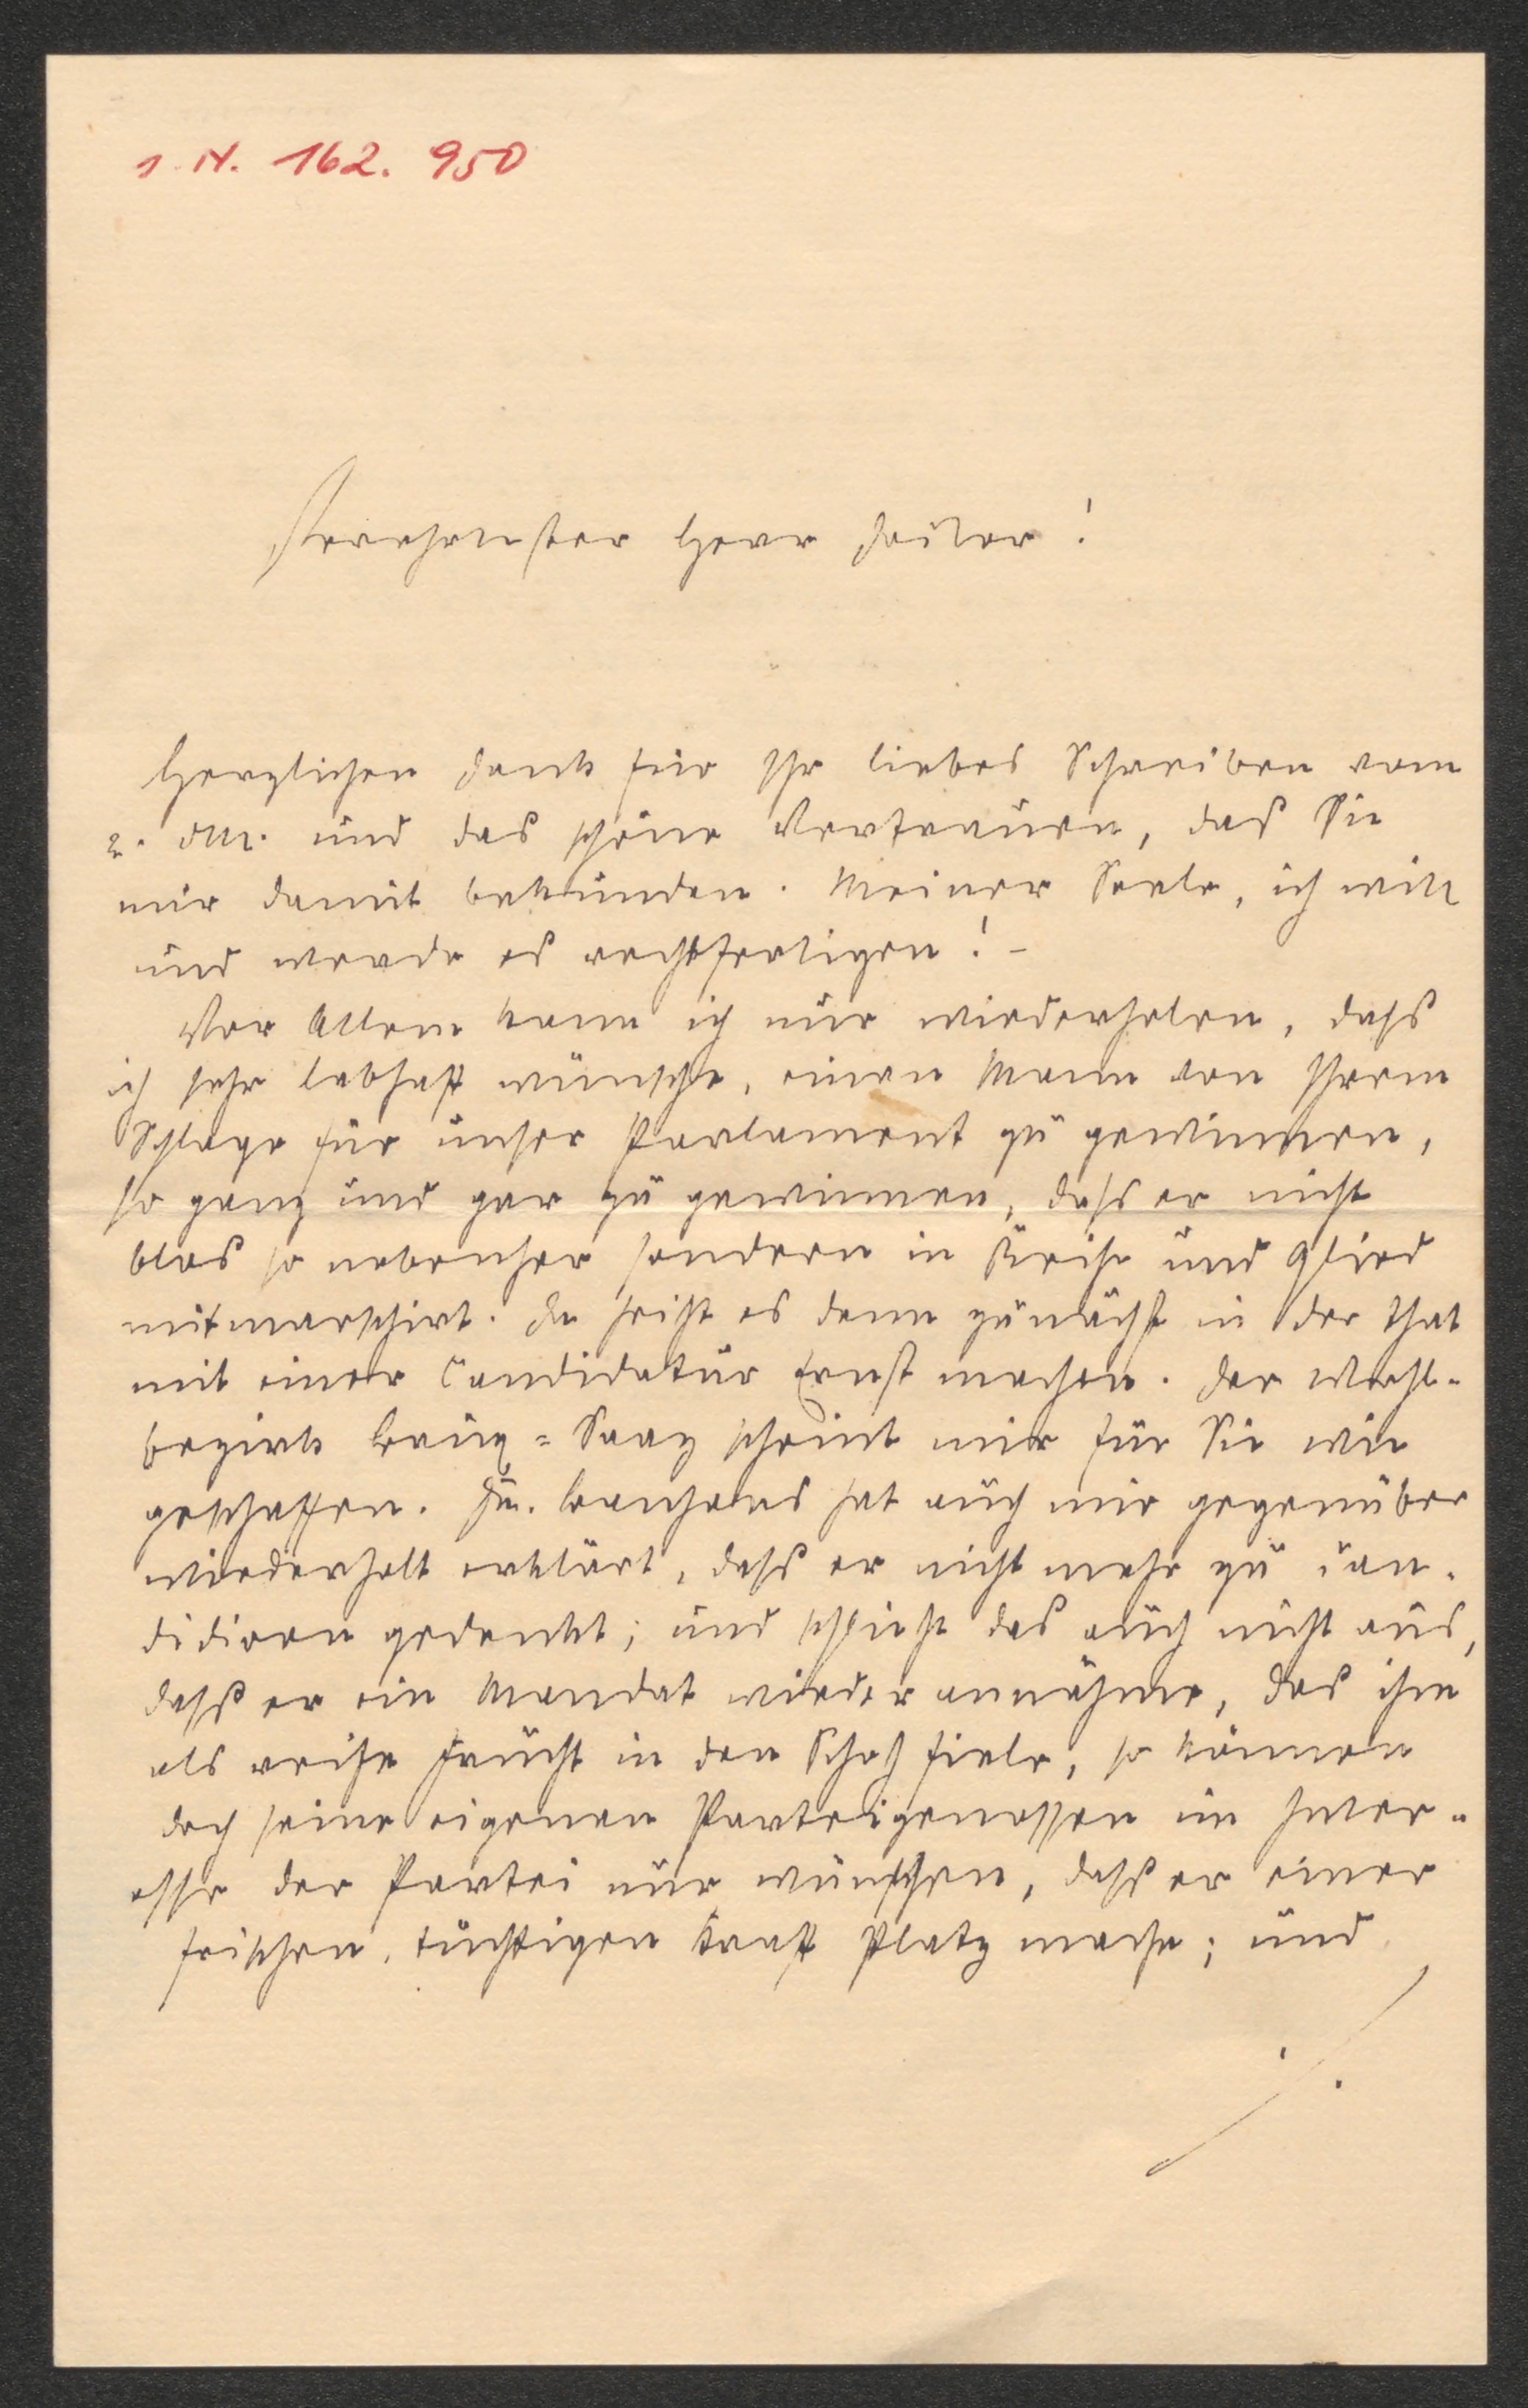 I. N. 162.950
Verehrtester Herr Doctor!
Herzlichen Dank für Ihr liebes Schreiben vom
2. dM. und das schöne Vertrauen, das Sie
mir damit bekunden. Meiner Seele, ich will
und werde es rechtfertigen! –
Vor Allem kann ich nur wiederholen, daß
ich sehr lebhaft wünsche, einen Mann von Ihrem
Schlage für unser Parlament zu gewinnen,
so ganz und gar zu gewinnen, daß er nicht
blos so nebenher sondern in Reihe und Glied
mitmarschirt. Da heißt es denn zunächst in der That
mit einer Candidatur Ernst machen. Der Wahl-
bezirk Brüx-Saaz scheint mir für Sie wie
geschaffen. hat auch mir gegenüber
wiederholt erklärt, daß er nicht mehr zu can-
didiren gedenkt; und schließt das auch nicht aus,
daß er ein Mandat wieder annähme, das ihm
als reife Frucht in den Schoß fiele, so können
doch seine eigenen Parteigenossen im Inter-
esse der Partei nur wünschen, daß er einer
frischen, tüchtigen Kraft Platz mache; und
./.